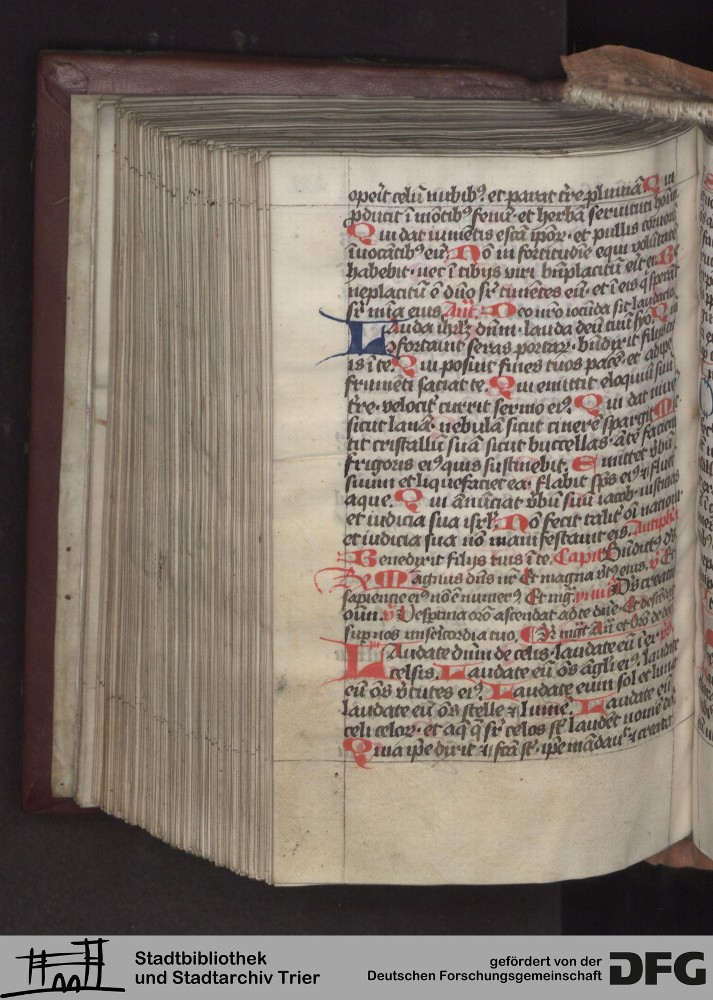 operit celū nubibꝫ et parat t're pluuiā Q ui
ꝓducit ī mōtibꝫ fenū et herbā seruituti hoīm
Q ui dat iumētis escā ipoꝝ et pullis coruoꝝ
īuocātibꝫ eū N ō in fortitudīe equi volūtatē
habebit nec ī tibijs viri bn̄placitū erit ei Be
neplacitū ē dn̄o sr̄ timētes eū et ī eis q̇ sperāt
sr̄ mīa eius Añ. Deo nr̄o iocūda sit laudacio
Lauda ihrl̄m dūm lauda deū tuū syō Qm
ꝯfortauit seras portaꝝ bn̄dixit filijs tu
is ī te. Q ui posuit fines tuos pacē et adipe
frumēti saciat te. Q ui emittit eloquiū suū
t're velocit' currit sermo eiꝰ. Q ui dat niuē
sicut lanā nebulā sicut cinerē spargit M it
tit cristallū suā sicut buccellas ātē faciem
frigoris eiꝰ quis sustinebit. E mittet v̄bū
suum et liquefaciet ea flabit sp̄s eiꝰ ⁊ fluēt
aque. Q ui ānūciat v̄bū suū iacob iusticias
et iudicia sua isrl̄. Nō fecit talit' oī nacioni
et iudicia sua nō manifestauit eis. Antipha
Benedixit filijs tuis ī te. Capit Bn̄dictꝰ dꝰ
R̄ Magnus dn̄s nr̄ Et magna v'tꝰ eius. v̄ Et
sapiencie eiꝰ nō ē numerꝰ Et mg.
oūn. v̄ Vesptina orō ascendat ad te dn̄e Et descēdat
sup nos misericordia tua.
Laudate dnm de celis laudate eū ī ex
celsis. Laudate eū ōs āgli eiꝰ laudate
eū ōs v'tutes eiꝰ. Laudate eum sol et luna
laudate eū ōs stelle ⁊ lumē. Laudate eū
celi celoꝝ et aq̄ q̄ sr̄ celos st̄ laudēt nomē dn̄i
Quia ip̄e dixit ⁊ fc̄ā st̄ ip̄e mādauit ⁊ creata
Stadtbibliothek
und Stadtarchiv Trier
gefördert von der
Deutschen Forschungsgemeinschaft
DFG